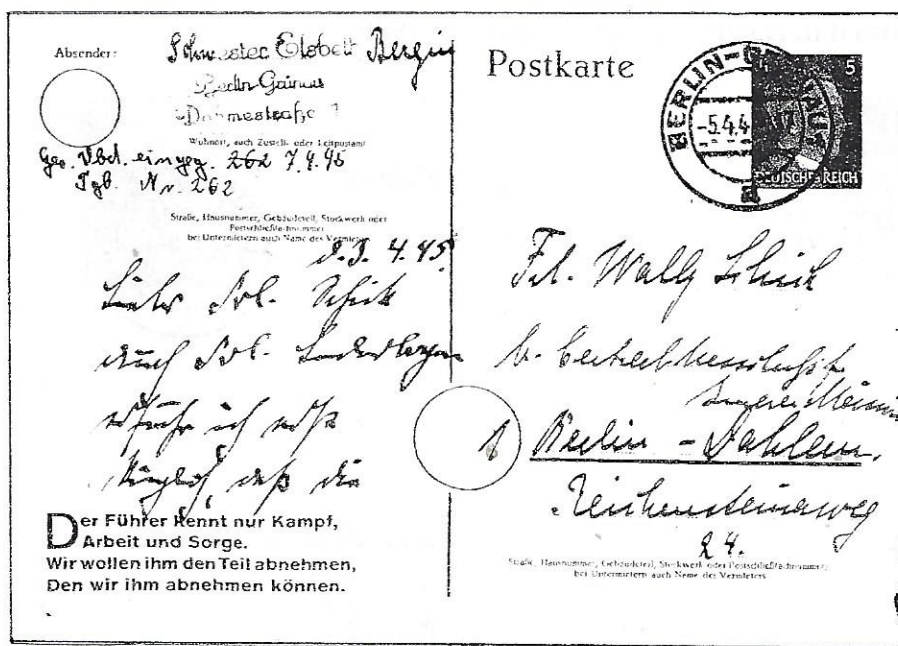 Absender:
Schwester Elsbeth Bergin
Berlin-Grünau
Dahmestraße 1
Wohnort, auch Zustell- oder Leitpostamt
Ges. Vbd. eingeg. 262 7.4.45
Tgb. Nr. 262
Straße, Hausnummer, Gebäudeteil, Stockwerk oder
Postschließfachnummer
bei Untermietern auch Name des Vermieters
4.45
Frl.
auch Frl.
erfuhr ich erst
daß die
Der Führer kennt nur Kampf,
Arbeit und Sorge.
Wir wollen ihm den Teil abnehmen,
Den wir ihm abnehmen können.
Postkarte
BERLIN-GRÜNAU
-5.4.4
a
5
DEUTSCHES REICH
Frl. Wally Schick
b.
Berlin-Dahlem.
Reichensteinerweg
24.
Straße, Hausnummer, Gebäudeteil, Stockwerk oder Postschließfachnummer;
bei Untermietern auch Name des Vermieters